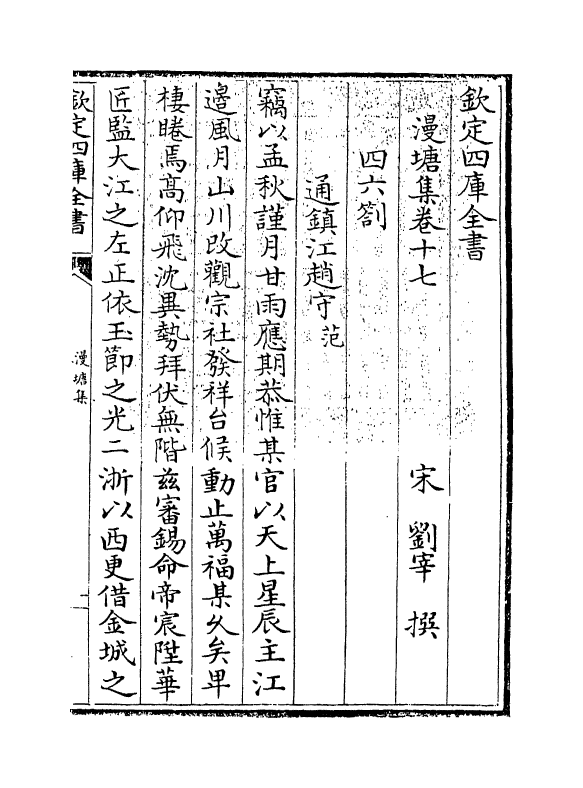 欽定四庫全書
漫塘集卷十七
宋 劉宰 撰
四六劄
通鎮江趙守范
竊以孟秋謹月甘雨應期恭惟某官以天上星辰主江
邉風月山川改觀宗社發祥台候動止萬福某久矣卑
棲睠焉髙仰飛沈異勢拜伏無階兹審錫命帝宸陞華
匠監大江之左正依玉節之光二浙以西更借金城之
欽定四庫全書
漫塘集
一